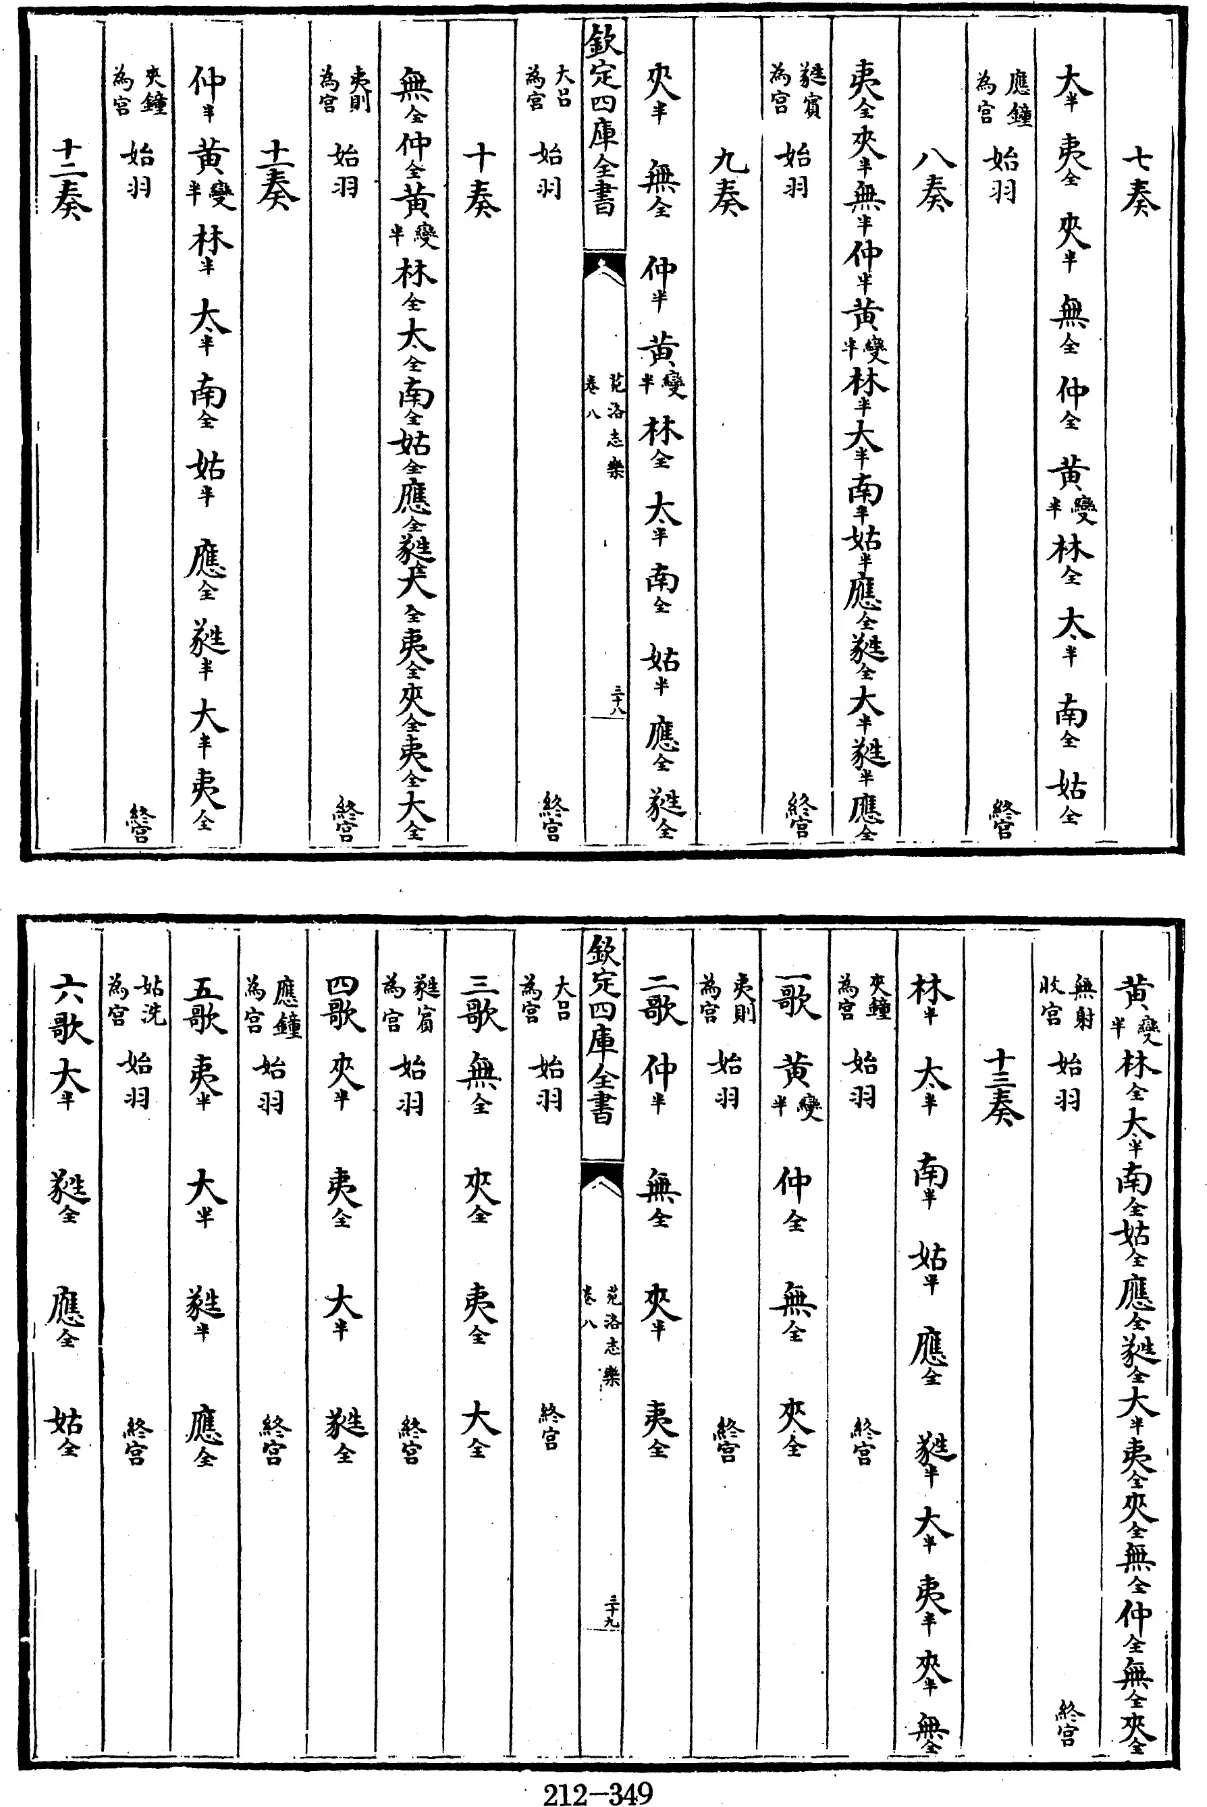 七奏
大半夷全夾半無全仲全黃變半林全太半南全姑全
應鐘為宮始羽終宮
八奏
夷全夾半無半仲半黃變半林半太半南半姑半應全蕤全大半蕤半應全
蕤賓為宮始羽終宮
九奏
夾半無全仲半黃變半林全太半南全姑半應全蕤全
欽定四庫全書
苑洛志樂
卷八
三十八
大呂為宮始羽終宮
十奏
無全仲全黃變半林全太全南全姑全應全蕤全大全夷全夾全夷全大全
夷則為宮始羽終宮
十一奏
仲半黃變半林半太半南全姑半應全蕤半大半夷全
夾鐘為宮始羽終宮
十二奏
黃變半林全太半南全姑全應全蕤全大半夷全夾全無全仲全無全夾全
無射收宮始羽終宮
十三奏
林半太半南半姑半應全蕤半大半夷半夾半無全
夾鐘為宮始羽終宮
一歌黃變半仲全無全夾全
夷則為宮始羽終宮
二歌仲半無全夾半夷全
欽定四庫全書
苑洛志樂
卷八
三十九
大呂為宮始羽終宮
三歌無全夾全夷全大全
蕤賓為宮始羽終宮
四歌夾半夷全大半蕤全
應鐘為宮始羽終宮
五歌夷半大半蕤半應全
姑洗為宮始羽終宮
六歌大半蕤全應全姑全
212-349